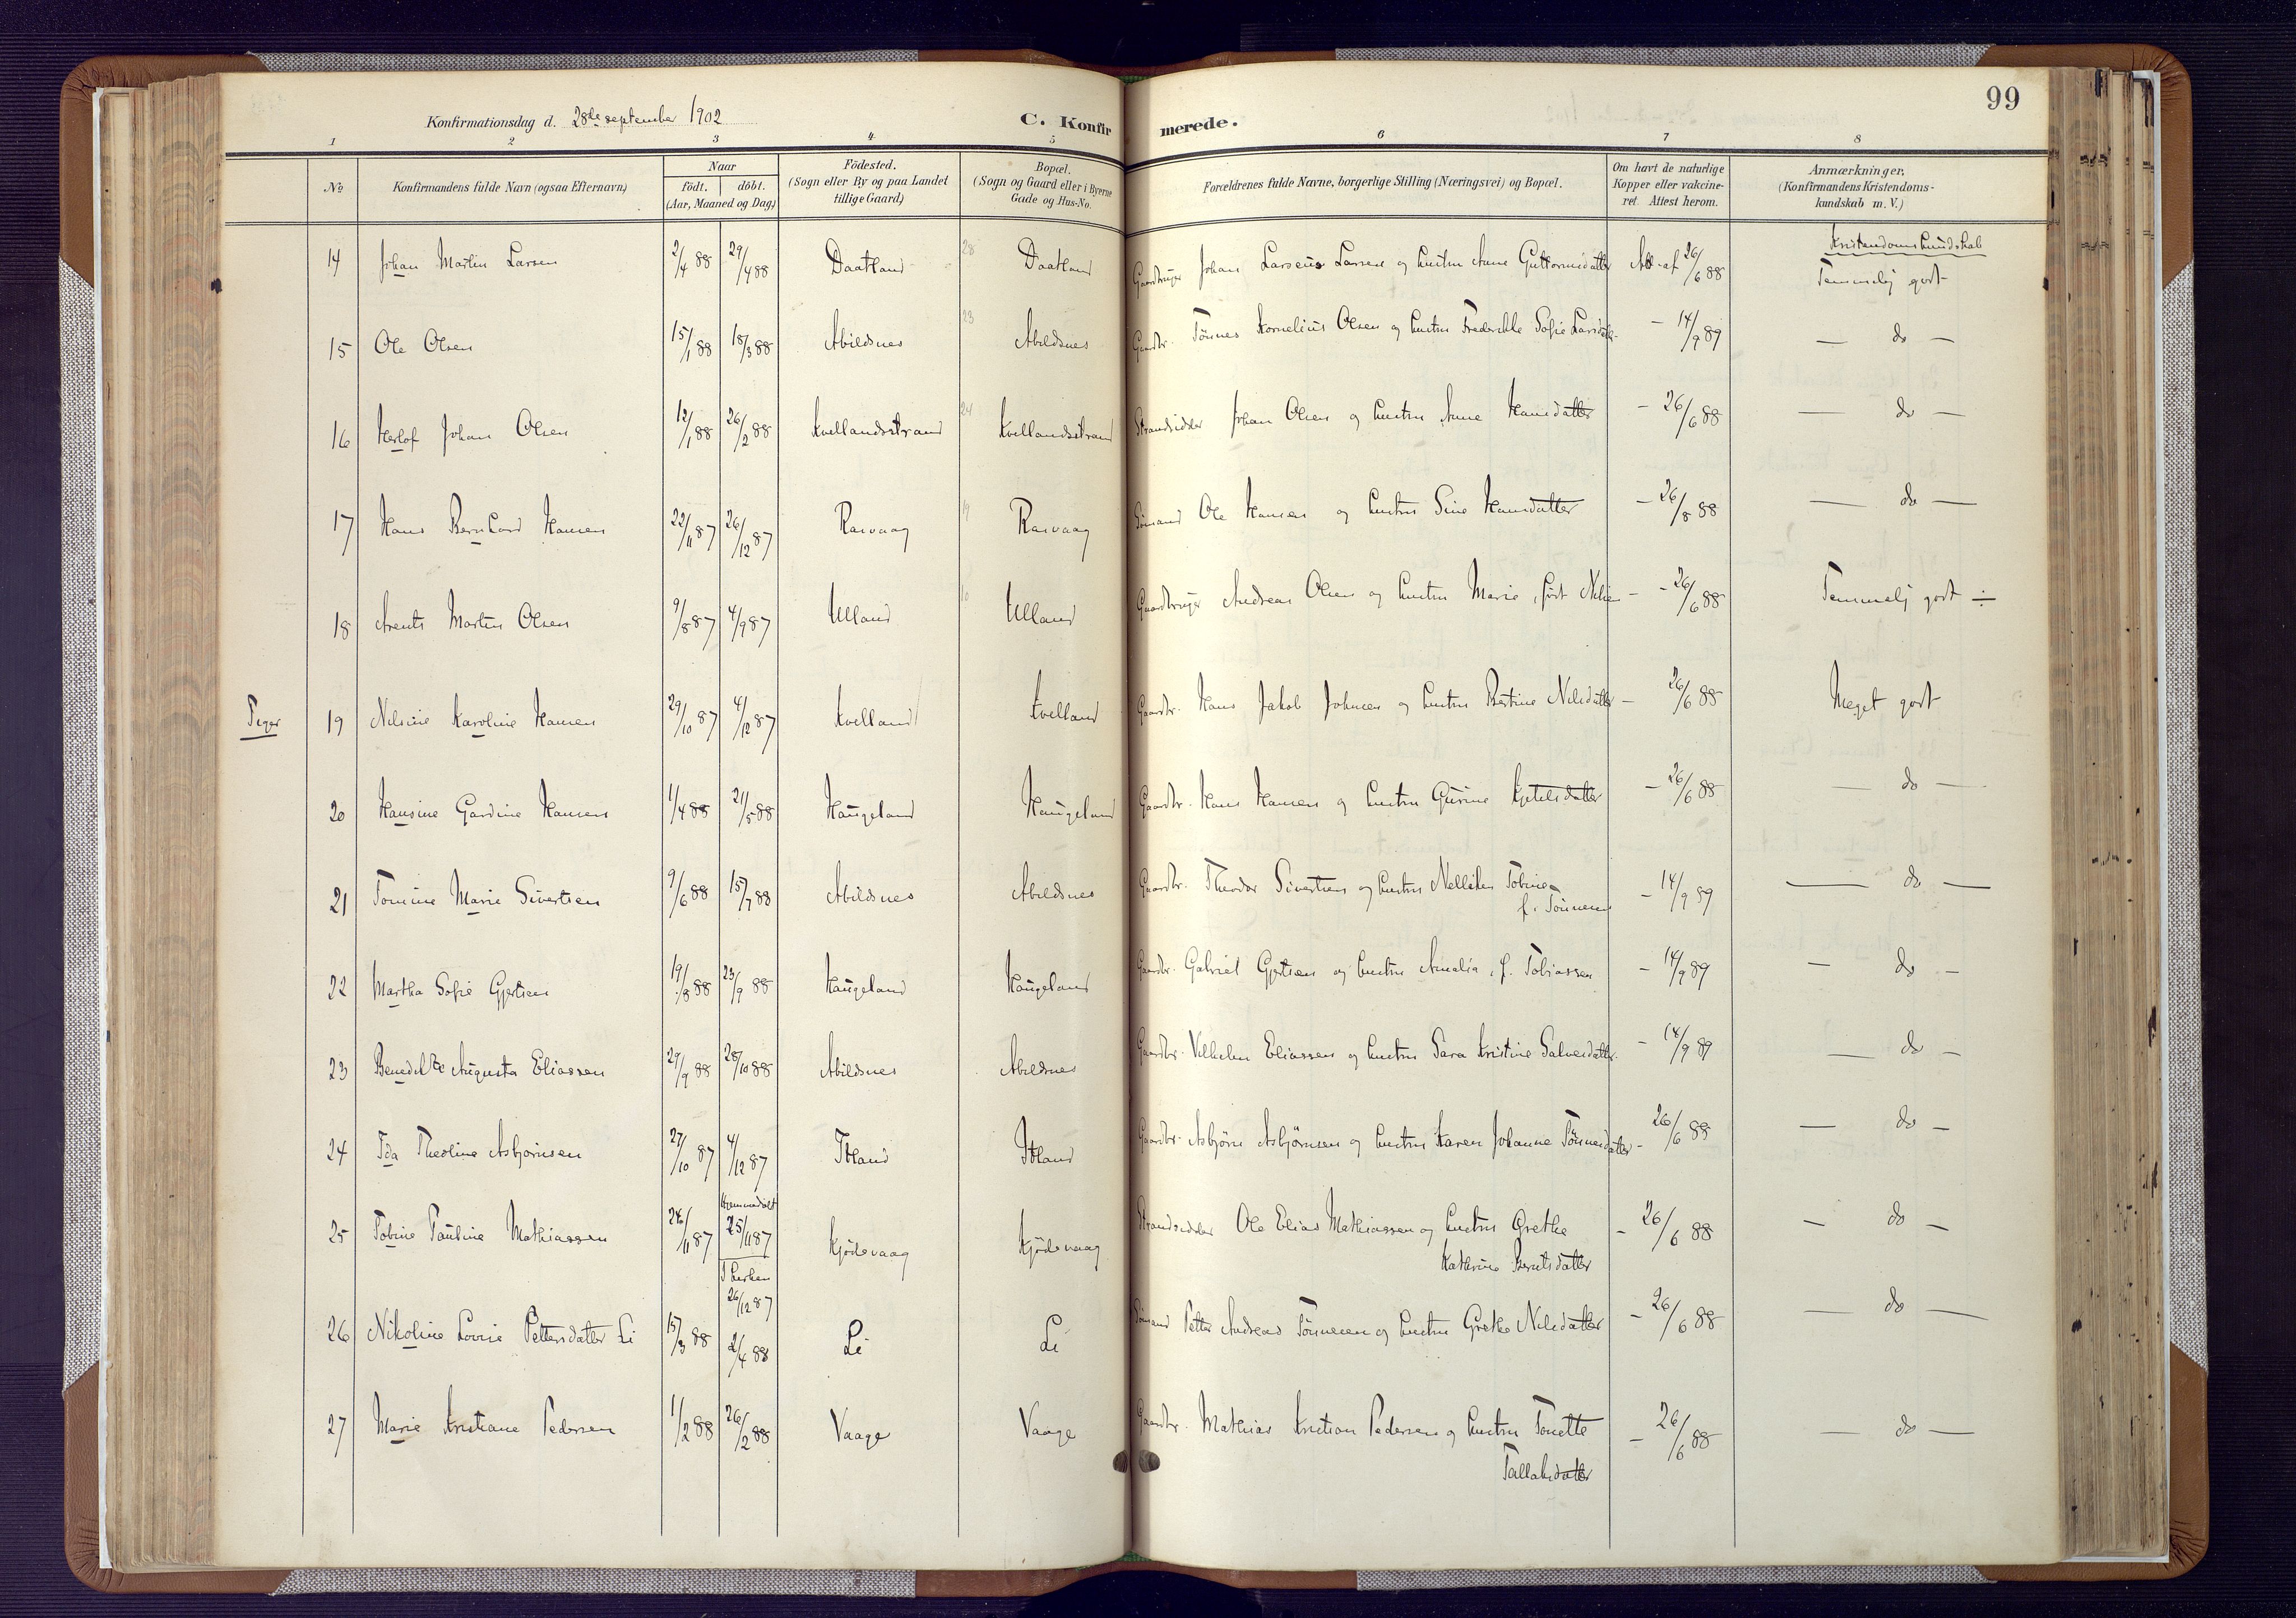 99
Konfirmationsdag d. 28de september 1902
C. Konfirmerede.
1 2 3 4 5 6 7 8
No. Konfirmandens fulde Navn (ogsaa Efternavn) Naar født. døbt. (Aar, Maaned og Dag) Födested. (Sogn eller By og paa Landet tillige Gaard) Bopæl. (Sogn og Gaard eller i Byerne Gade og Hus-No. Forældrenes fulde Navne, borgerlige Stilling (Næringsvei) og Bopæl. Om havt de naturlige Kopper eller vakcineret. Attest herom. Anmærkninger, (Konfirmandens Kristendomskundskab m. V.)
Kristendomskundskab
14 Johan Martin Larsen 2/4 88 29/4 88 Daatland 28 Daatland Gaardbruger Johan Larsens Larsen og hustru Anne Guttormsdatter Att af 26/6 88 Temmelig godt
15 Ole Olsen 15/1 88 18/3 88 Abildsnes 23 Abildsnes Gaardbr. Tønnes Kornelius Olsen og hustru Fredrikke Sofie Larsdatter - 14/9 89 — do —
16 Herlof Johan Olsen 12/1 88 26/2 88 Kvellandsstrand 24 Kvellandsstrand Strandsidder Johan Olsen og hustru Anne Hansdatter - 26/6 88 — do —
17 Hans Bernhard Hansen 22/11 87 26/12 87 Rasvaag 19 Rasvaag Sømand Ole Hansen og hustru Sine Hansdatter - 26/8 88 — do —
18 Arents Martin Olsen 9/8 87 4/9 87 Ulland 10 Ulland Gaardbruger Andreas Olsen og hustru Marie, født Nilsen - 26/6 88 Temmelig godt ÷
Piger
19 Nilsine Karoline Hansen 29/10 87 4/12 87 Kvelland Kvelland Gaardbr. Hans Jakob Johnsen og hustru Bertine Nilsdatter - 26/6 88 Meget godt
20 Hansine Gardine Hansen 1/4 88 21/5 88 Haugeland Haugeland Gaardbr. Hans Hansen og hustru Gurine Kjetelsdatter - 26/6 88 — do —
21 Tomine Marie Sivertsen 9/6 88 15/7 88 Abildsnes Abildsnes Gaardbr. Theodor Sivertsen og hustru Nelliken Tobine
f. Tønnesen - 14/9 89 — do —
22 Martha Sofie Gjertsen 19/8 88 23/9 88 Haugeland Haugeland Gaardbr. Gabriel Gjertsen og hustru Amalia, f. Tobiassen - 14/9 89 — do —
23 Benedikte Augusta Eliassen 29/9 88 28/10 88 Abildsnes Abildsnes Gaardbr. Vilhelm Eliassen og hustru Sara Kristine Salvesdatter - 14/9 89 — do —
24 Ida Theoline Asbjørnsen 27/10 87 4/12 87 Itland Itland Gaardbr. Asbjørn Asbjørnsen og hustru Karen Johanne Tønnesdatter - 26/6 88 — do —
Hjemmedøbt
25 Tobine Pauline Mathiassen 24/11 87 25/11 87 Kjødsvaag Kjødsvaag Strandsidder Ole Elias Mathiassen og hustru Grethe
Kathrine Berntsdatter - 26/6 88 — do —
I kirken
26/12 87
26 Nikoline Lovise Pettersdatter Li 15/3 88 2/4 88 Li Li Sømand Petter Andreas Tønnesen og hustru Grethe Nilsdatter - 26/6 88 — do —
27 Marie Kristiane Pedersen 1/2 88 26/2 88 Vaage Vaage Gaardbr. Mathias Kristian Pedersen og hustru Tonette
Tallaksdatter - 26/6 88 — do —